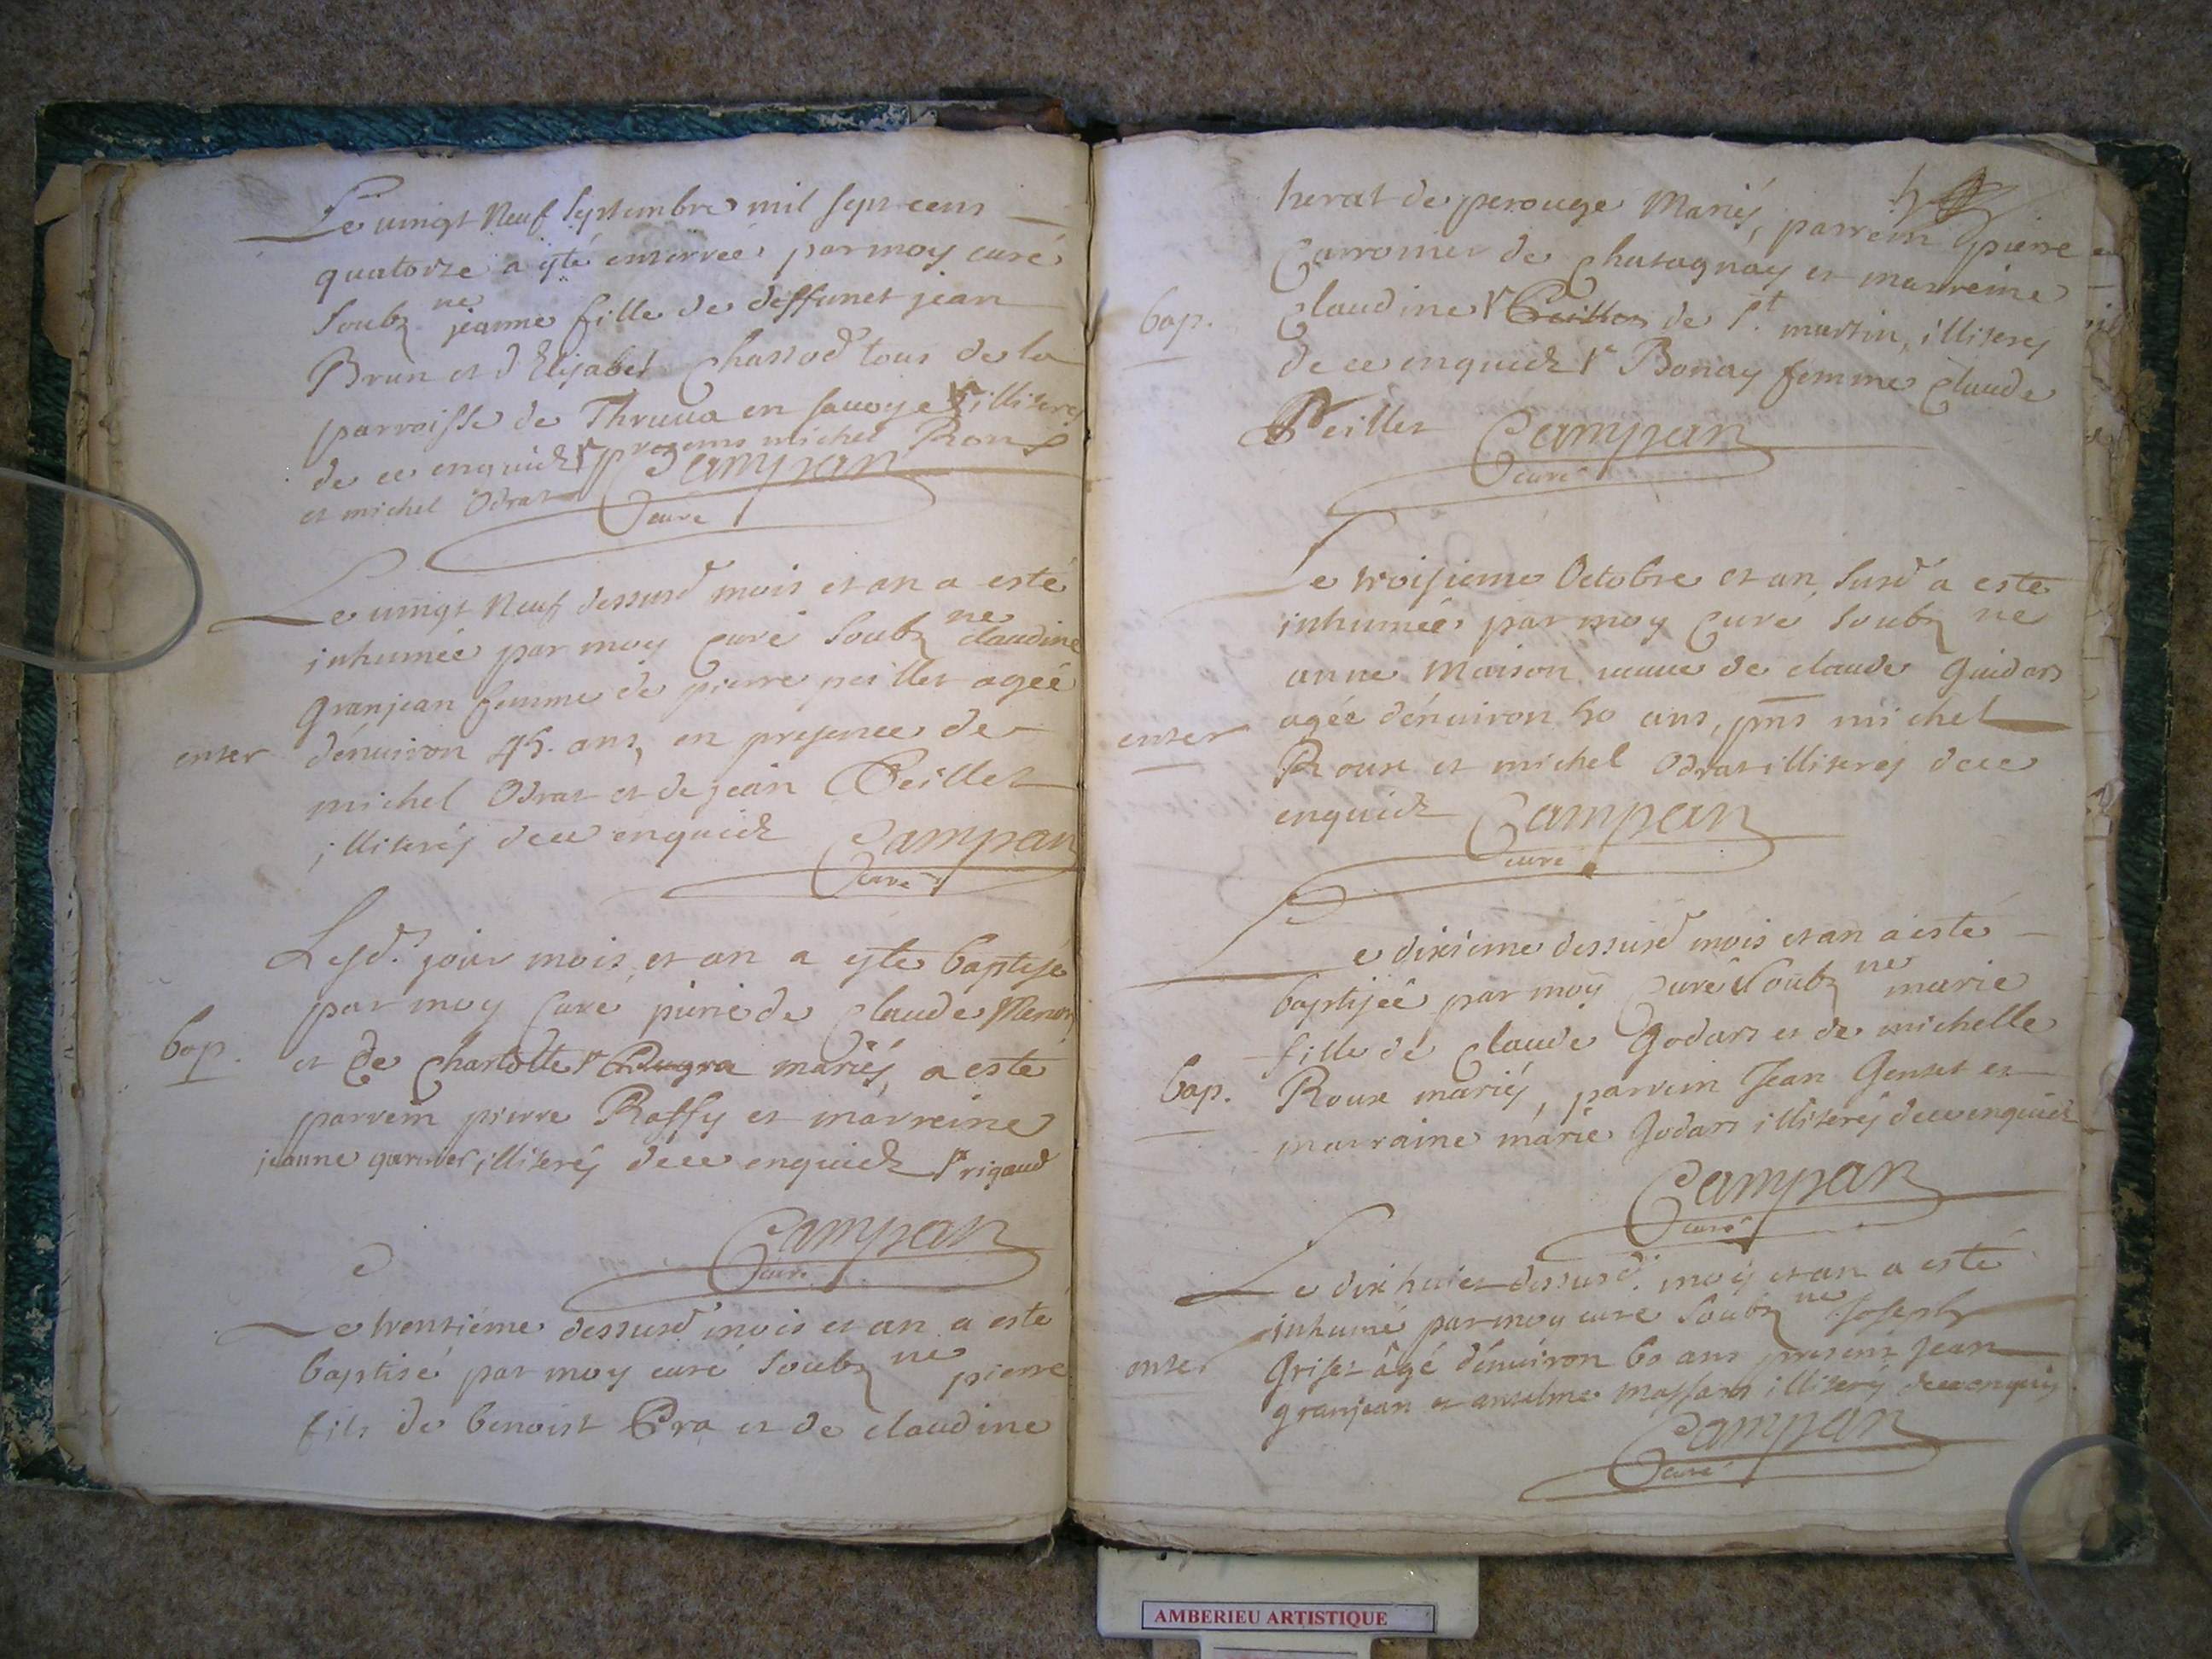 Le vingt Neuf Septembre mil sept cens
quatorze a esté enterrée par moy curé
Soubz ne jeanne fille de deffunct jean
Brun et d'Elisabet Chassod tous de la
parroisse de en savoye illiterés
de ce enquick presens michel Roux
et michel Odrat Campan
curé
Le vingt Neuf dessusd mois et an a esté
inhumée par moy Curé Soubz ne claudine
Granjean femme de pierre peillet agée
enter
d'énuiron 45. ans, en presence de
michel Odrat et de jean Peillet
illiterés de ce enquick Campan
curé
Lesd. jour mois, et an a esté baptisé
par moy Curé, de Claude
bap.
et de Charlotte mariés, a esté
parrein pierre Raffy et marreine
jeanne garnier illiterés de ce enquick rigaud
Campan
curé
Le trentiéme dessusd mois et an a esté
baptisé par moy curé Soubz ne pierre
fils de benoist Pra et de claudine
herat de perouge Mariés, parrein pierre
Carronier de Chatagnay et marreine
bap.
Claudine de St. martin, illiterés
de ce enquick Bonay femme Claude
Peillet Campan
curé
Le troisieme Octobre et an susd a esté
inhumée par moy Curé Soubz ne
anne Maison veuve de claude Guidars
agée d'énuiron 50 ans, pns michel
enter
Roux et michel Odrat illiterés de ce
enquick Campan
curé
Le dixieme dessusd mois et an a esté
baptisée par moy Curé Soubz ne marie
fille de Claude Godars et de michelle
bap.
Roux mariés, parrein Jean Genset et
marraine marie Godars illiterés de ce enquick
Campan
curé
Le dix huict dessusd. mois et an a esté
inhumé par moy curé Soubz ne Joseph
enter
Griset âgé d'énuiron 60 ans presens Jean
granjean et antelme massars illiterés de ce enquis
Campan
curé
AMBERIEU ARTISTIQUE